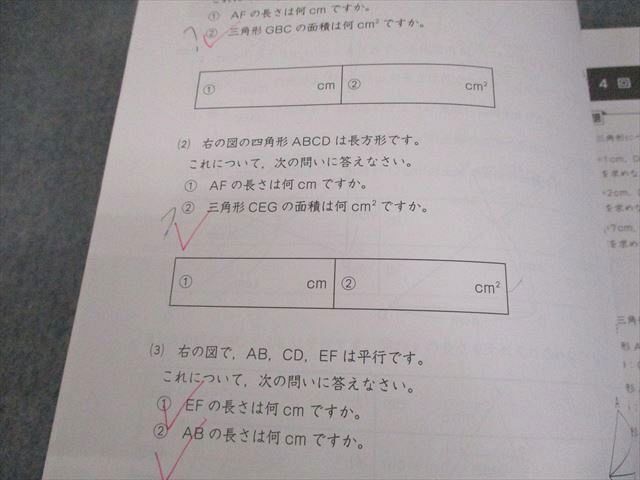 ① AFの長さは何cmですか。
② 三角形GBCの面積は何cm²ですか。
① cm ② cm²
(2) 右の図の四角形ABCDは長方形です。
これについて，次の問いに答えなさい。
① AFの長さは何cmですか。
② 三角形CEGの面積は何cm²ですか。
① cm ② cm²
(3) 右の図で，AB，CD，EFは平行です。
これについて，次の問いに答えなさい。
① EFの長さは何cmですか。
② ABの長さは何cmですか。
4 回
三角形に
1cm, D
を求めな
2cm,
を求め
7cm,
を求め
三角
形A